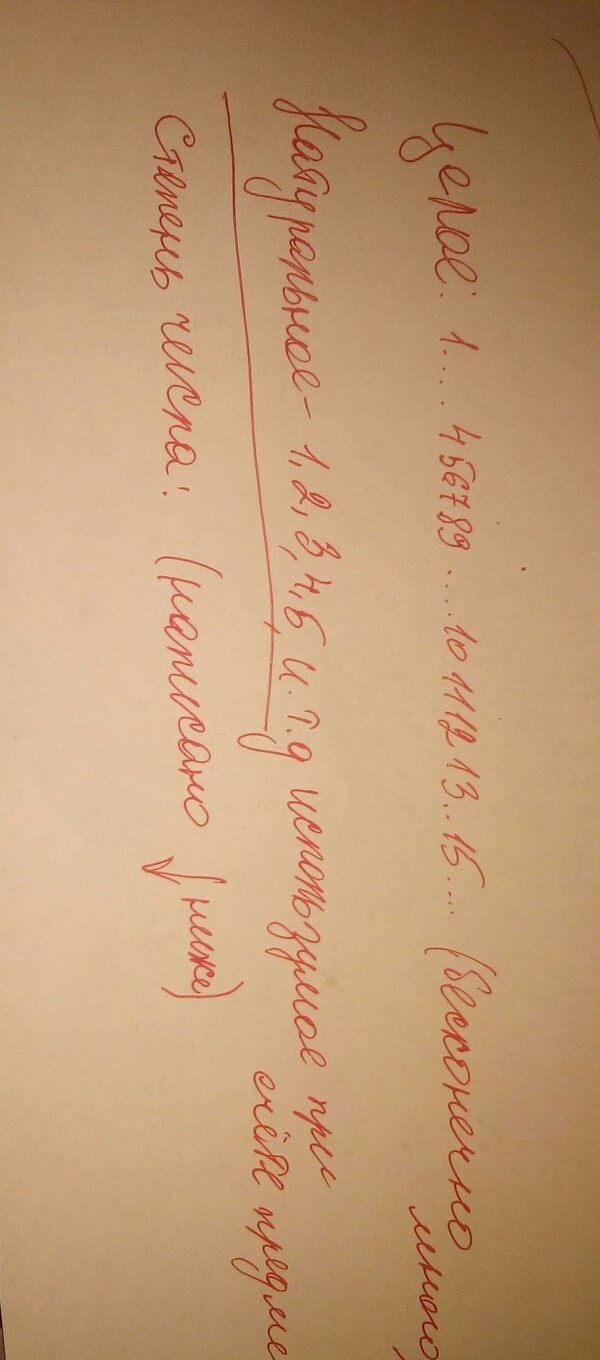 Целое: 1.... 4 5 6 7 8 9 .... 10 11 12 13.. 15.... (бесконечно
много)
Натуральное - 1, 2, 3, 4, 5 и.т.д используемое при
счёте предме
Степень числа: (написано ↓ ниже)